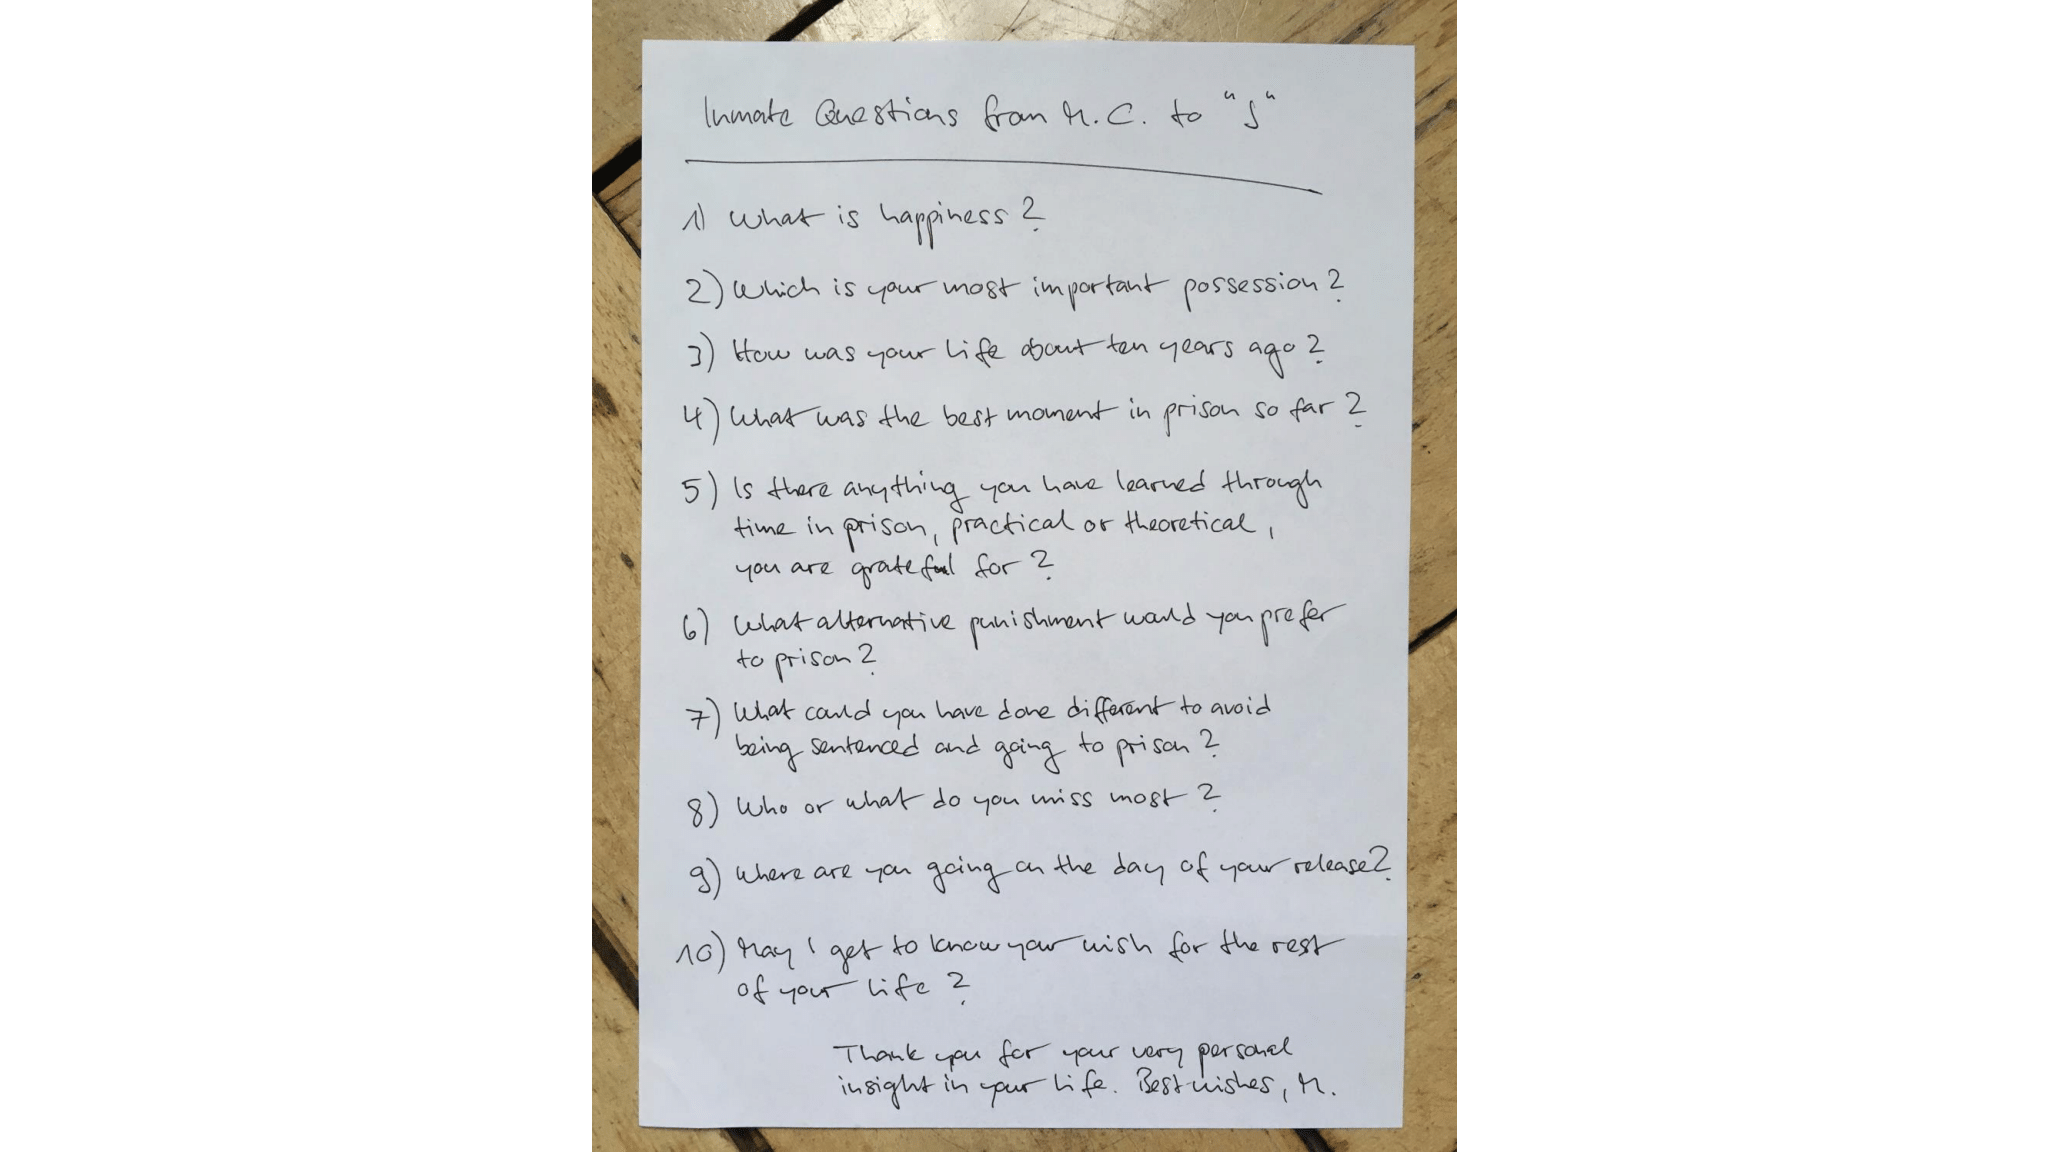 Inmate Questions from M.C. to "J"
1) What is happiness?
2) Which is your most important possession?
3) How was your life about ten years ago?
4) What was the best moment in prison so far?
5) Is there anything you have learned through
time in prison, practical or theoretical,
you are grateful for?
6) What alternative punishment would you prefer
to prison?
7) What could you have done different to avoid
being sentenced and going to prison?
8) Who or what do you miss most?
9) Where are you going on the day of your release?
10) May I get to know your wish for the rest
of your life?
Thank you for your very personal
insight in your life. Best wishes, M.